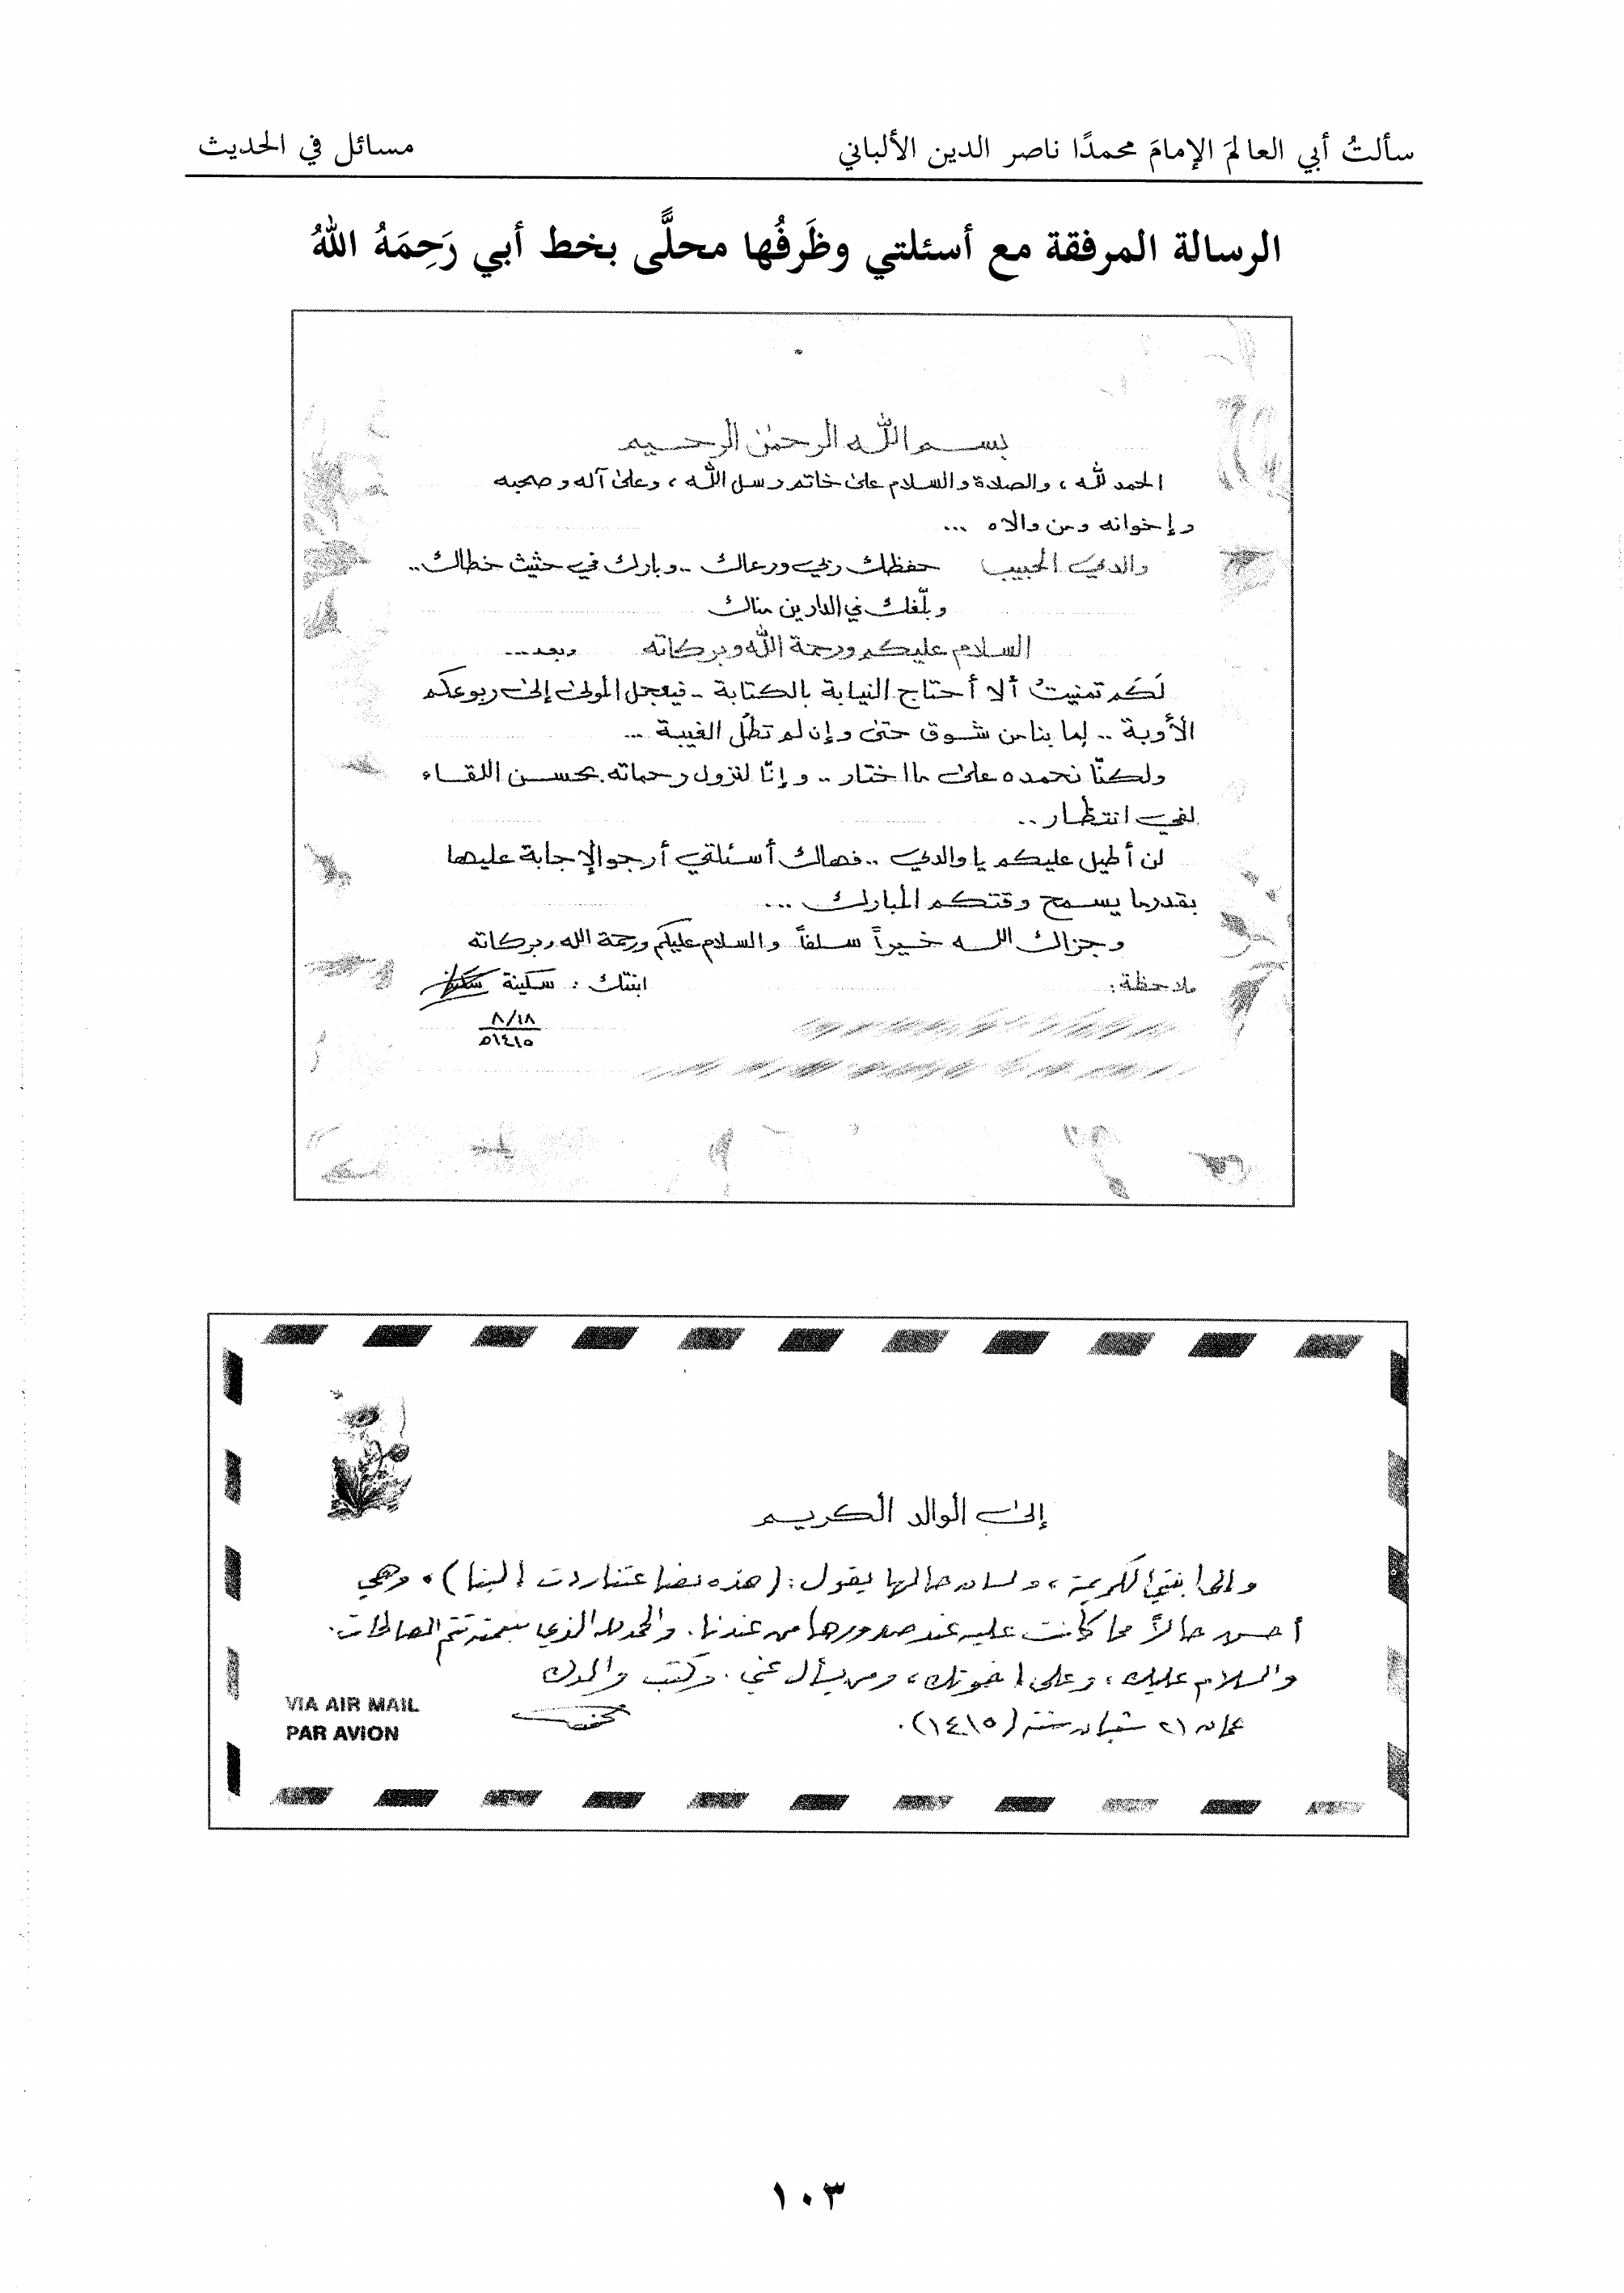 سألتُ أبي العالمَ الإمامَ محمدًا ناصر الدين الألباني
مسائل في الحديث
الرسالة المرفقة مع أسئلتي وظَرفُها محلًّى بخط أبي رَحِمَهُ اللهُ
بسم الله الرحمٰن الرحيم
الحمد لله ، والصلاة والسلام علىٰ خاتم رسل الله ، وعلىٰ آله وصحبه
وإخوانه ومن والاه ...
والدي الحبيب حفظك ربي ورعاك .. وبارك في حثيث خطاك ..
وبلّغك في الدارين مناك
السلام عليكم ورحمة الله وبركاته وبعد...
لَكَم تمنيتُ ألا أحتاج النيابة بالكتابة .. فيعجل المولىٰ إلىٰ ربوعكم
الأوبة .. لِما بنا من شوق حتىٰ وإن لم تطُل الغيبة ...
ولكنّا نحمده علىٰ ما اختار .. وإنّا لنزول رحماته بحسن اللقاء
لفي انتظار ..
لن أطيل عليكم يا والدي .. فهاك أسئلتي أرجو الإجابة عليها
بقدر ما يسمح وقتكم المبارك ...
وجزاك الله خيراً سلفاً والسلام عليكم ورحمة الله وبركاته
ملاحظة : ابنتك : سكينة
٨/١٨
١٤١٥هـ
إلىٰ الوالد الكريم
وإلى ابنتي الكريمة ، ولسان حالها يقول : (هذه بضاعتنا ردت إلينا) ، وهي
أحسن حالاً مما كانت عليه عند صدورها من عندنا . والحمد لله الذي بنعمته تتم الصالحات .
والسلام عليك ، وعلى اخوتك ، ومن يسأل عني . وكتب والدك
عمان ٢١ شعبان سنة (١٤١٥) .
VIA AIR MAIL
PAR AVION
١٠٣